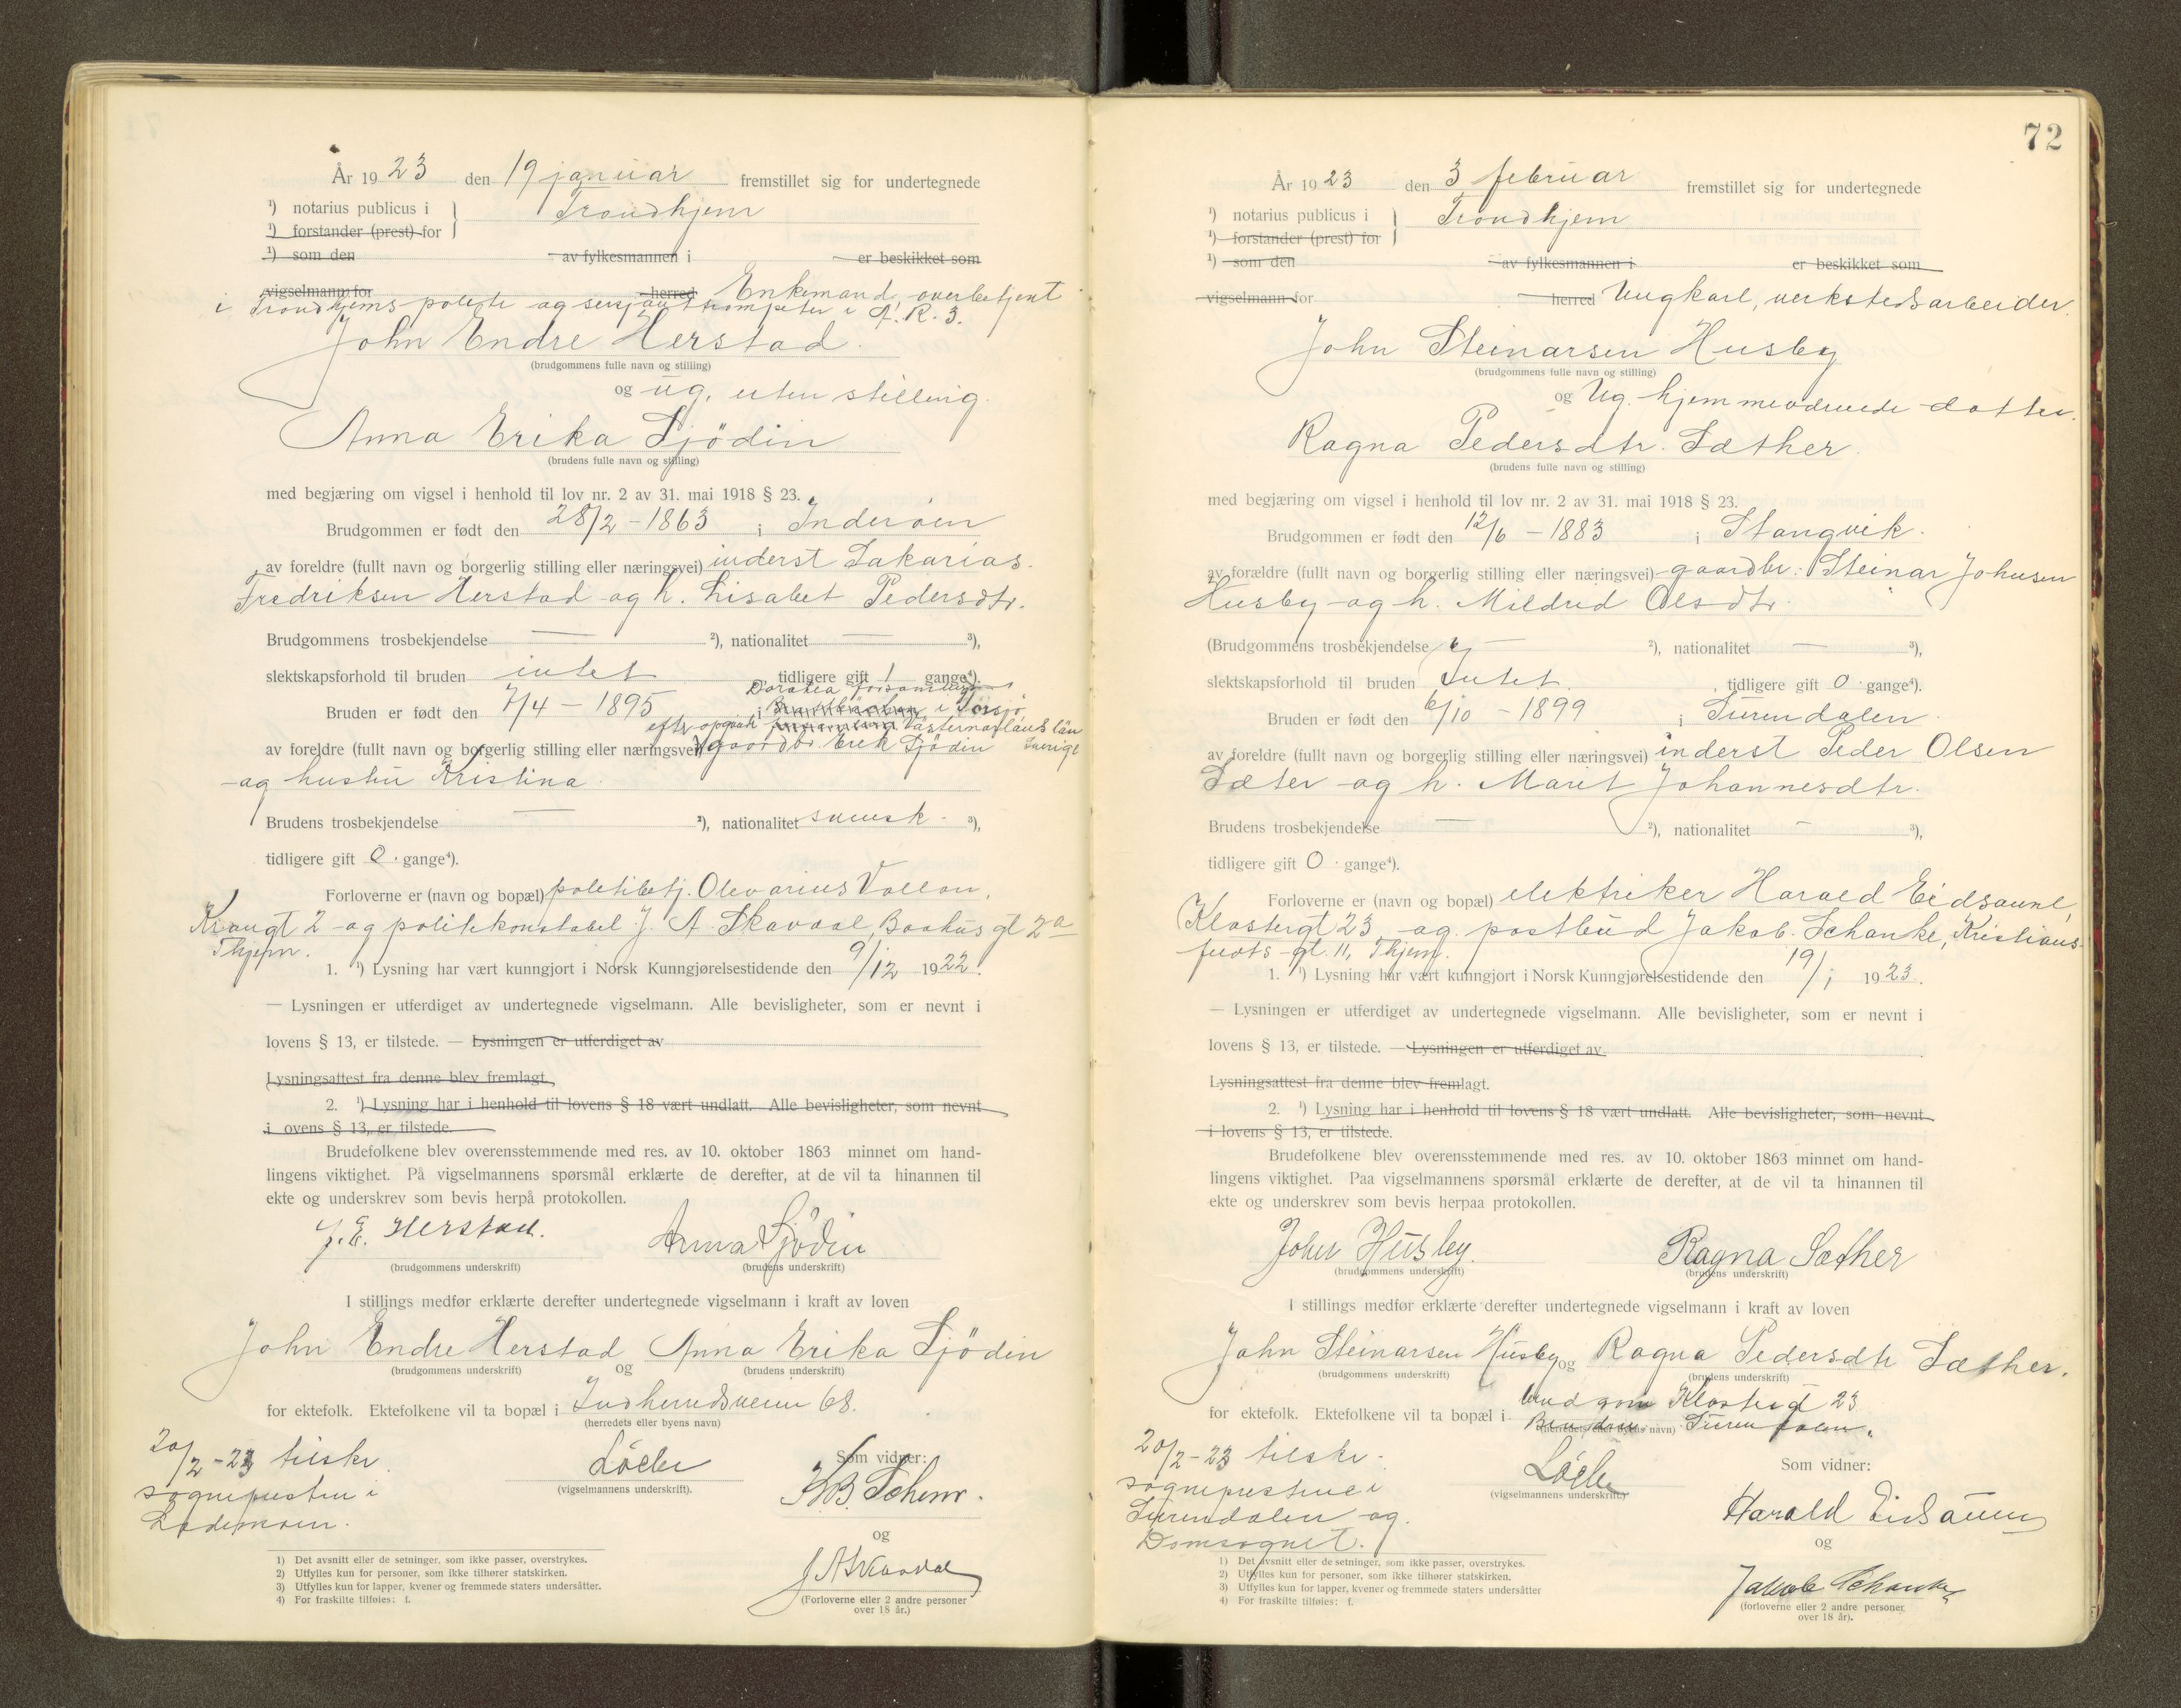 År 1923 den 19 januar fremstillet sig for undertegnede
¹) notarius publicus i Trondhjem
¹) forstander (prest) for
¹) som den av fylkesmannen i er beskikket som
vigselmann for herred Enkemand, overbetjent
i Trondhjems politi og sersjanttrompeter i A. R. 3.
John Endre Herstad.
(brudgommens fulle navn og stilling)
og ug. uten stilling.
Anna Erika Sjödin
(brudens fulle navn og stilling)
med begjæring om vigsel i henhold til lov nr. 2 av 31. mai 1918 § 23.
Brudgommen er født den 28/2 - 1863 i Inderöen
av foreldre (fullt navn og borgerlig stilling eller næringsvei) inderst Sakarias
Fredriksen Herstad og h. Lisabet Pedersdtr.
Brudgommens trosbekjendelse — ²), nationalitet — ³),
slektskapsforhold til bruden intet tidligere gift 1 gange⁴).
Dorotea forsamling
Bruden er født den 7/4 - 1895 i i Torsjö
efter opgave Västernorrlands län
av foreldre (fullt navn og borgerlig stilling eller næringsvei) gaardbr. Erik Sjödin Sverige
og hustru Kristina.
Brudens trosbekjendelse — ²), nationalitet svensk. ³),
tidligere gift 0 gange⁴).
Forloverne er (navn og bopæl) politibetj. Olevarius Vollan,
Krangt 2 og politikonstabel J. A. Skavaal, Baahus gt 2a
Thjem.
1. ¹) Lysning har vært kunngjort i Norsk Kunngjørelsestidende den 9/12 1922.
— Lysningen er utferdiget av undertegnede vigselmann. Alle bevisligheter, som er nevnt i
lovens § 13, er tilstede. — Lysningen er utferdiget av
Lysningsattest fra denne blev fremlagt.
2. ¹) Lysning har i henhold til lovens § 18 vært undlatt. Alle bevisligheter, som nevnt
i ovens § 13, er tilstede.
Brudefolkene blev overensstemmende med res. av 10. oktober 1863 minnet om hand-
lingens viktighet. På vigselmannens spørsmål erklærte de derefter, at de vil ta hinannen til
ekte og underskrev som bevis herpå protokollen.
J. E. Herstad. Anna Sjödin
(brudgommens underskrift) (brudens underskrift)
I stillings medfør erklærte derefter undertegnede vigselmann i kraft av loven
John Endre Herstad og Anna Erika Sjödin
(brudgommens underskrift) (brudens underskrift)
for ektefolk. Ektefolkene vil ta bopæl i Indherredsveien 68.
(herredets eller byens navn)
20/2 - 23 tilskr.
sognepresten i
Lademoen.
Som vidner:
(vigselmannens underskrift).
og
J A Skavaal
(Forloverne eller 2 andre personer
over 18 år.)
1) Det avsnitt eller de setninger, som ikke passer, overstrykes.
2) Utfylles kun for personer, som ikke tilhører statskirken.
3) Utfylles kun for lapper, kvener og fremmede staters undersåtter.
4) For fraskilte tilføies: f.
72
År 1923 den 3 februar fremstillet sig for undertegnede
¹) notarius publicus i Trondhjem
¹) forstander (prest) for
¹) som den av fylkesmannen i er beskikket som
vigselmann for herred Ungkarl, verkstedsarbeider.
John Steinarsen Husby
(brudgommens fulle navn og stilling)
og Ug. hjemmeværende datter.
Ragna Pedersdtr. Sæther.
(brudens fulle navn og stilling)
med begjæring om vigsel i henhold til lov nr. 2 av 31. mai 1918 § 23.
Brudgommen er født den 12/6 - 1883 i Stangvik.
av forældre (fullt navn og borgerlig stilling eller næringsvei) gaardbr. Steinar Johnsen
Husby og h. Mildrid Olsdtr.
(Brudgommens trosbekjendelse — ²), nationalitet — ³),
slektskapsforhold til bruden Intet, tidligere gift 0 gange⁴).
Bruden er født den 6/10 - 1899 i Surendalen.
av foreldre (fullt navn og borgerlig stilling eller næringsvei) inderst Peder Olsen
Sæter og h. Marit Johannesdtr.
Brudens trosbekjendelse — ²), nationalitet — ³),
tidligere gift 0 gange⁴).
Forloverne er (navn og bopæl) elektriker Harald Eidsaune,
Klostergt 23 og postbud Jakob Schanke, Kristians-
feldts gt. 11, Thjem.
1. ¹) Lysning har vært kunngjort i Norsk Kunngjørelsestidende den 19/1 1923.
— Lysningen er utferdiget av undertegnede vigselmann. Alle bevisligheter, som er nevnt i
lovens § 13, er tilstede. — Lysningen er utferdiget av
Lysningsattest fra denne blev fremlagt.
2. ¹) Lysning har i henhold til lovens § 18 vært undlatt. Alle bevisligheter, som nevnt
i lovens § 13, er tilstede.
Brudefolkene blev overensstemmende med res. av 10. oktober 1863 minnet om hand-
lingens viktighet. Paa vigselmannens spørsmål erklærte de derefter, at de vil ta hinannen til
ekte og underskrev som bevis herpaa protokollen.
John Husby. Ragna Sæther
(brudgommens underskrift) (brudens underskrift)
I stillings medfør erklærte derefter undertegnede vigselmann i kraft av loven
John Steinarsen Husby og Ragna Pedersdtr Sæther.
(brudgommens underskrift) (brudens underskrift)
brudgom Klostergt 23
for ektefolk. Ektefolkene vil ta bopæl i Bruden Surendalen.
(herredets eller byens navn)
20/2 - 23 tilskr.
sogneprestene i
Surendalen og
Domsognet.
Som vidner:
(vigselmannens underskrift)
Harald Eidsaune
og
Jakob Schanke
(forloverne eller 2 andre personer
over 18 år).
1) Det avsnitt eller de setninger, som ikke passer, overstrykes.
2) Utfylles kun for personer, som ikke tilhører statskirken.
3) Utfylles kun for lapper, kvener og fremmede staters undersåtter
4) For fraskilte tilføies: f.